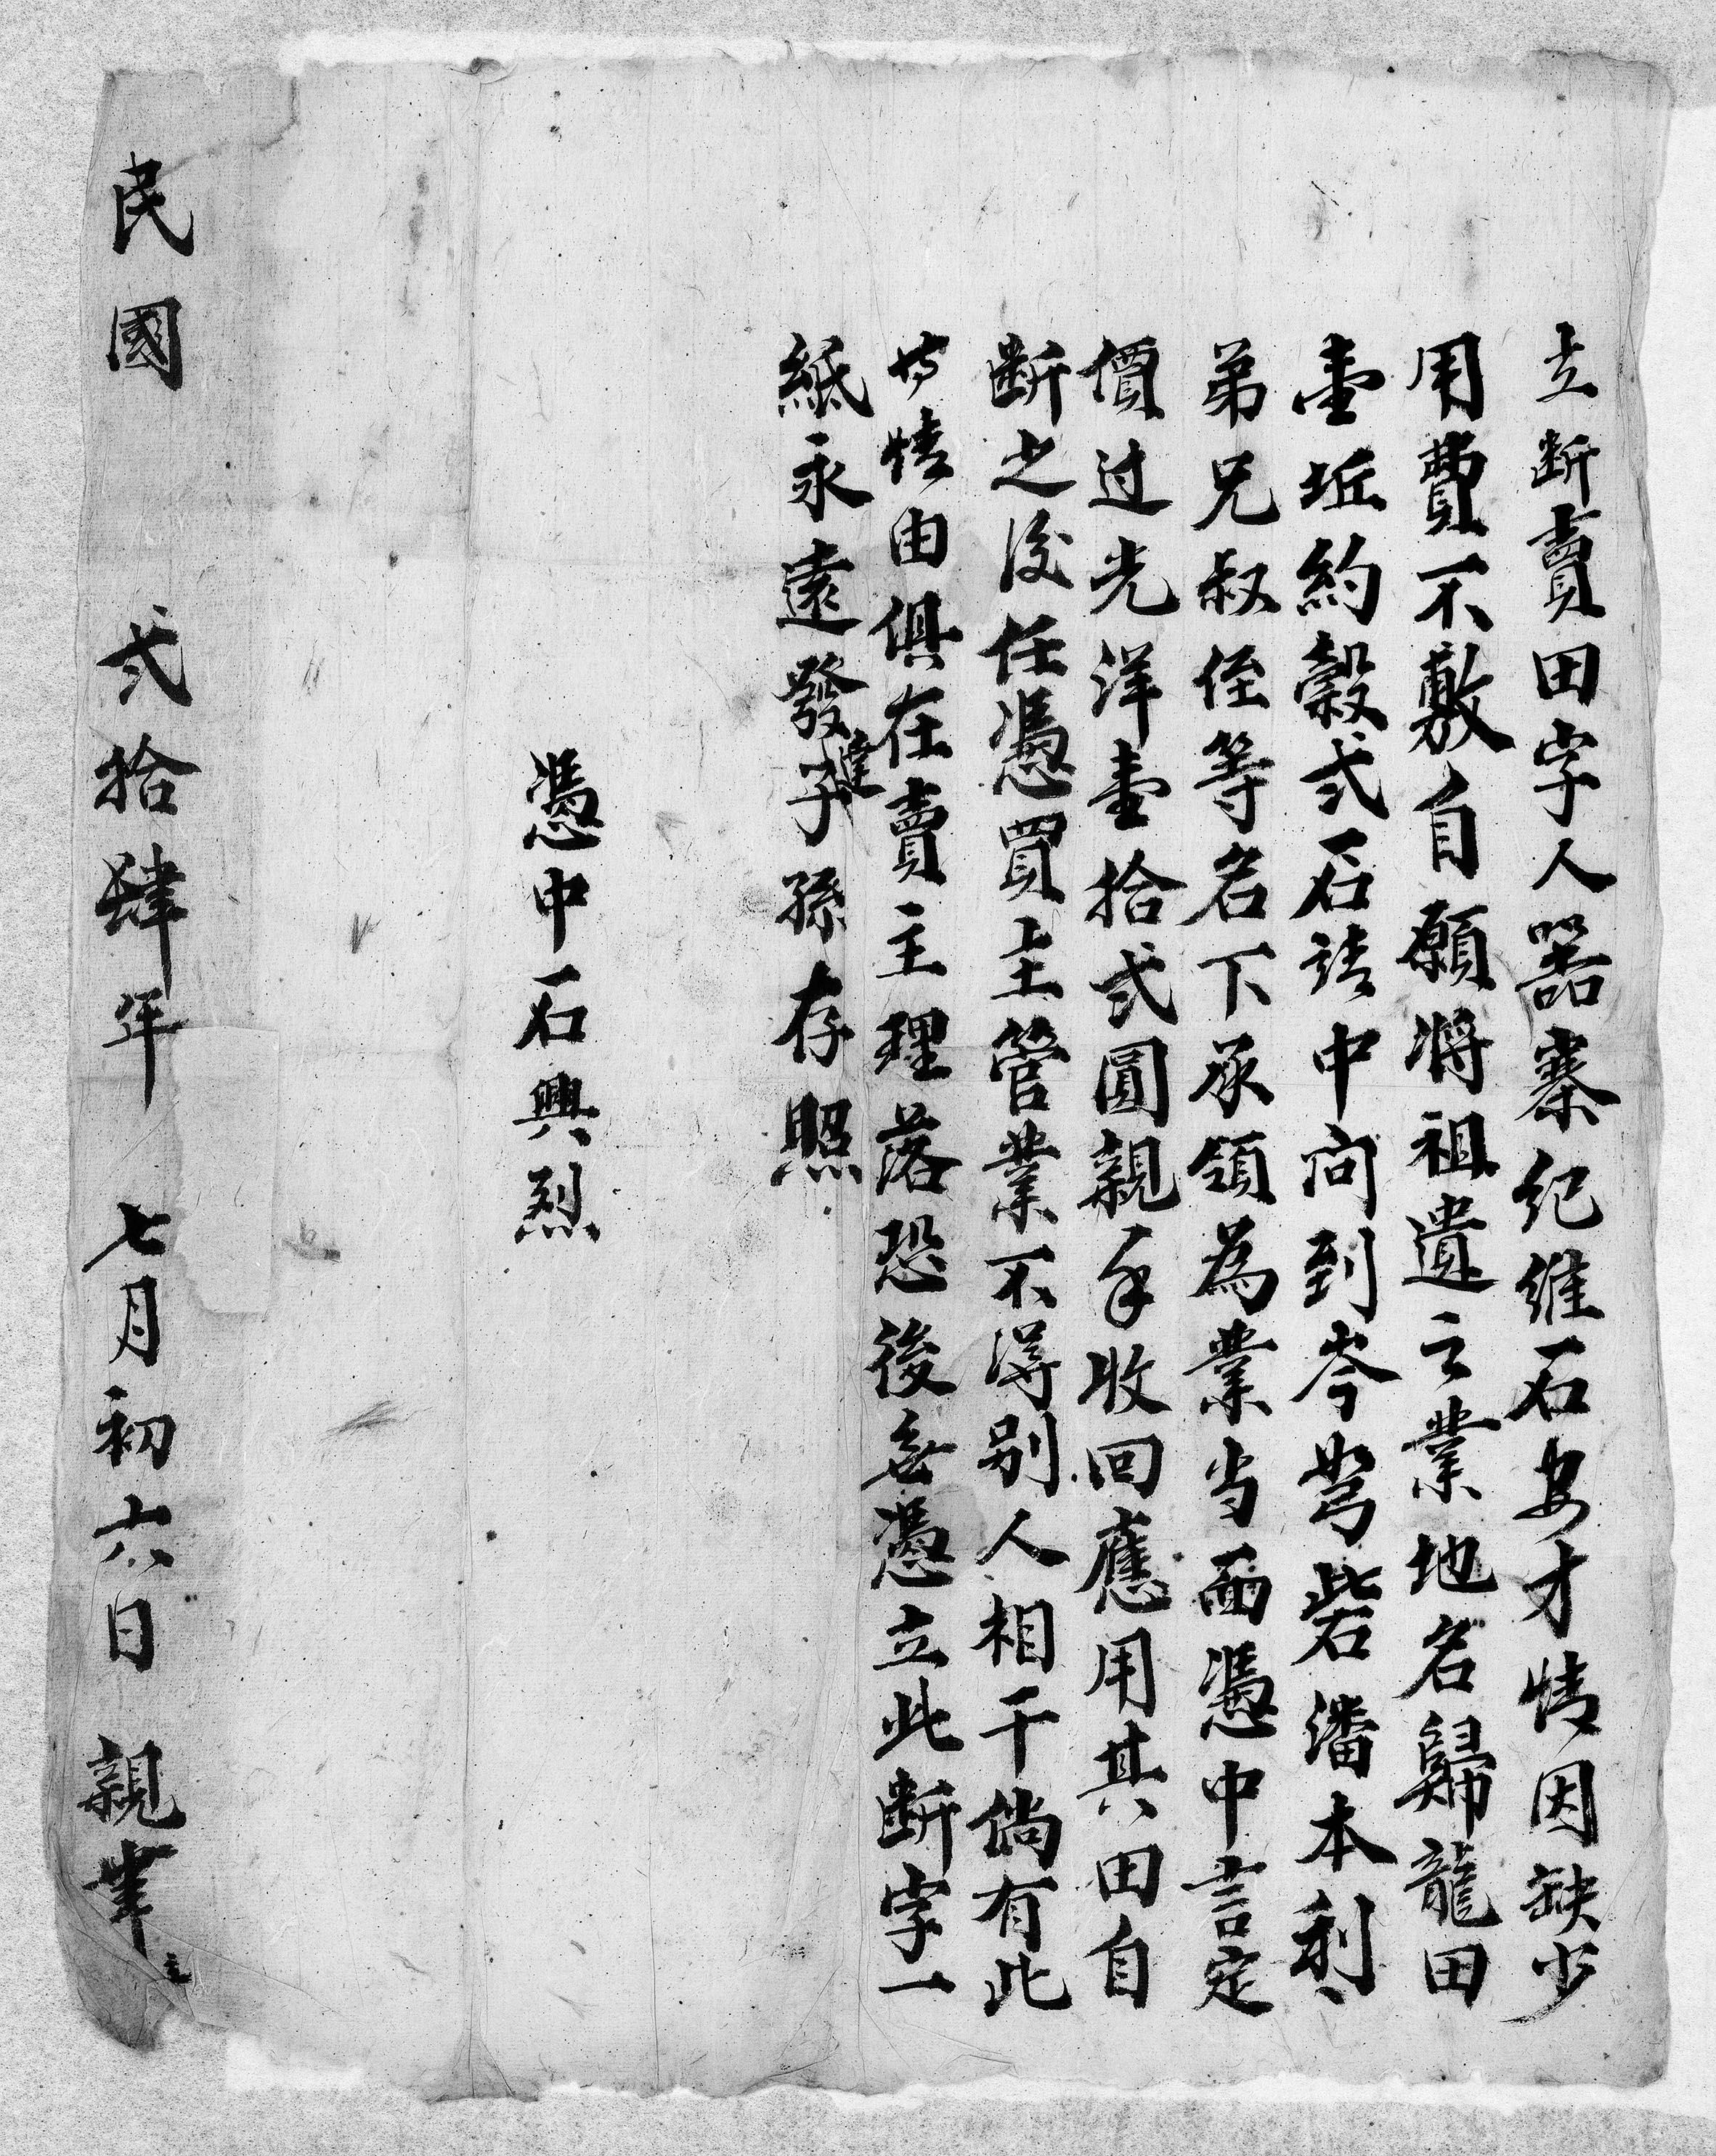 立断賣田字人器寨紀維石安才情因缺少
用費不敷自願將祖遺之業地名歸龍田
壹坵約穀弍石請中问到岑鸾砦潘本利
弟兄叔侄等名下承領為業当面憑中言定
價过光洋壹拾弍圓親手收回應用其田自
断之後任憑買主管業不得别人相干倘有此
情由俱在賣主理落恐後無憑立此断字一
紙永遠發達子孫存照
憑中石興烈
民國弍拾肆年七月初六日親筆立